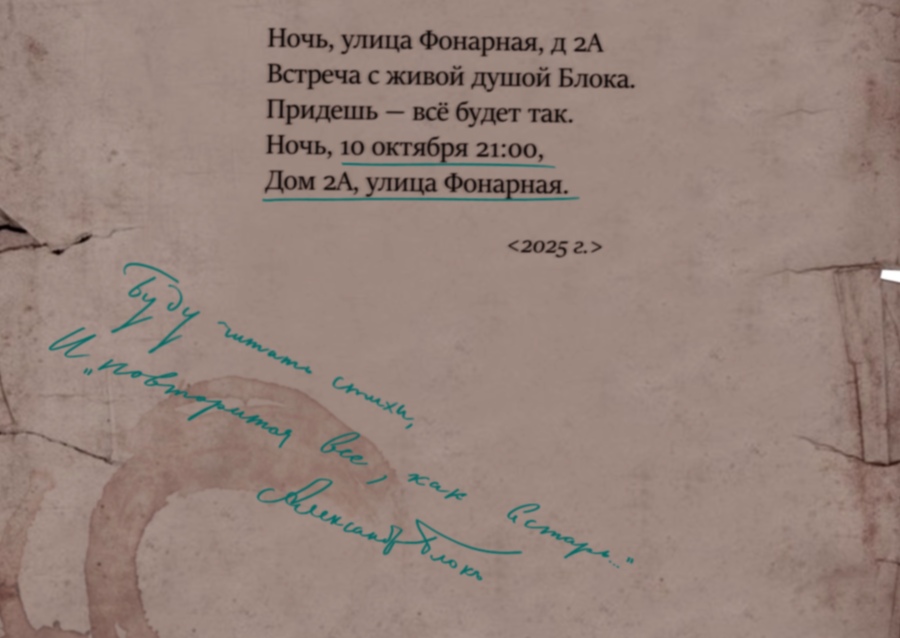 Ночь, улица Фонарная, д 2А
Встреча с живой душой Блока.
Придешь — всё будет так.
Ночь, 10 октября 21:00,
Дом 2А, улица Фонарная.
<2025 г.>
Буду читать стихи,
И „повторится все, как встарь..."
Александр Блокъ